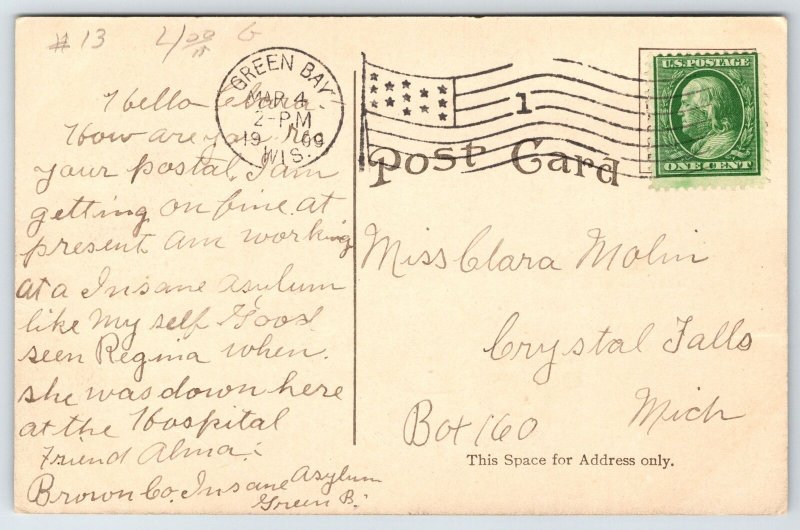 #13
GREEN BAY
MAR 4
2-PM
1909
WIS.
1
U.S. POSTAGE
ONE CENT
Post Card
Hello Clara
How are you. Rc
your postal, I am
getting on fine. at
present am working
at a Insane Asylum
like My self Good
seen Regina when
she was down here
at the Hospital
Friend Alma.
Brown Co. Insane Asylum
Green B.
Miss Clara Molin
Crystal Falls
Box 160
Mich
This Space for Address only.